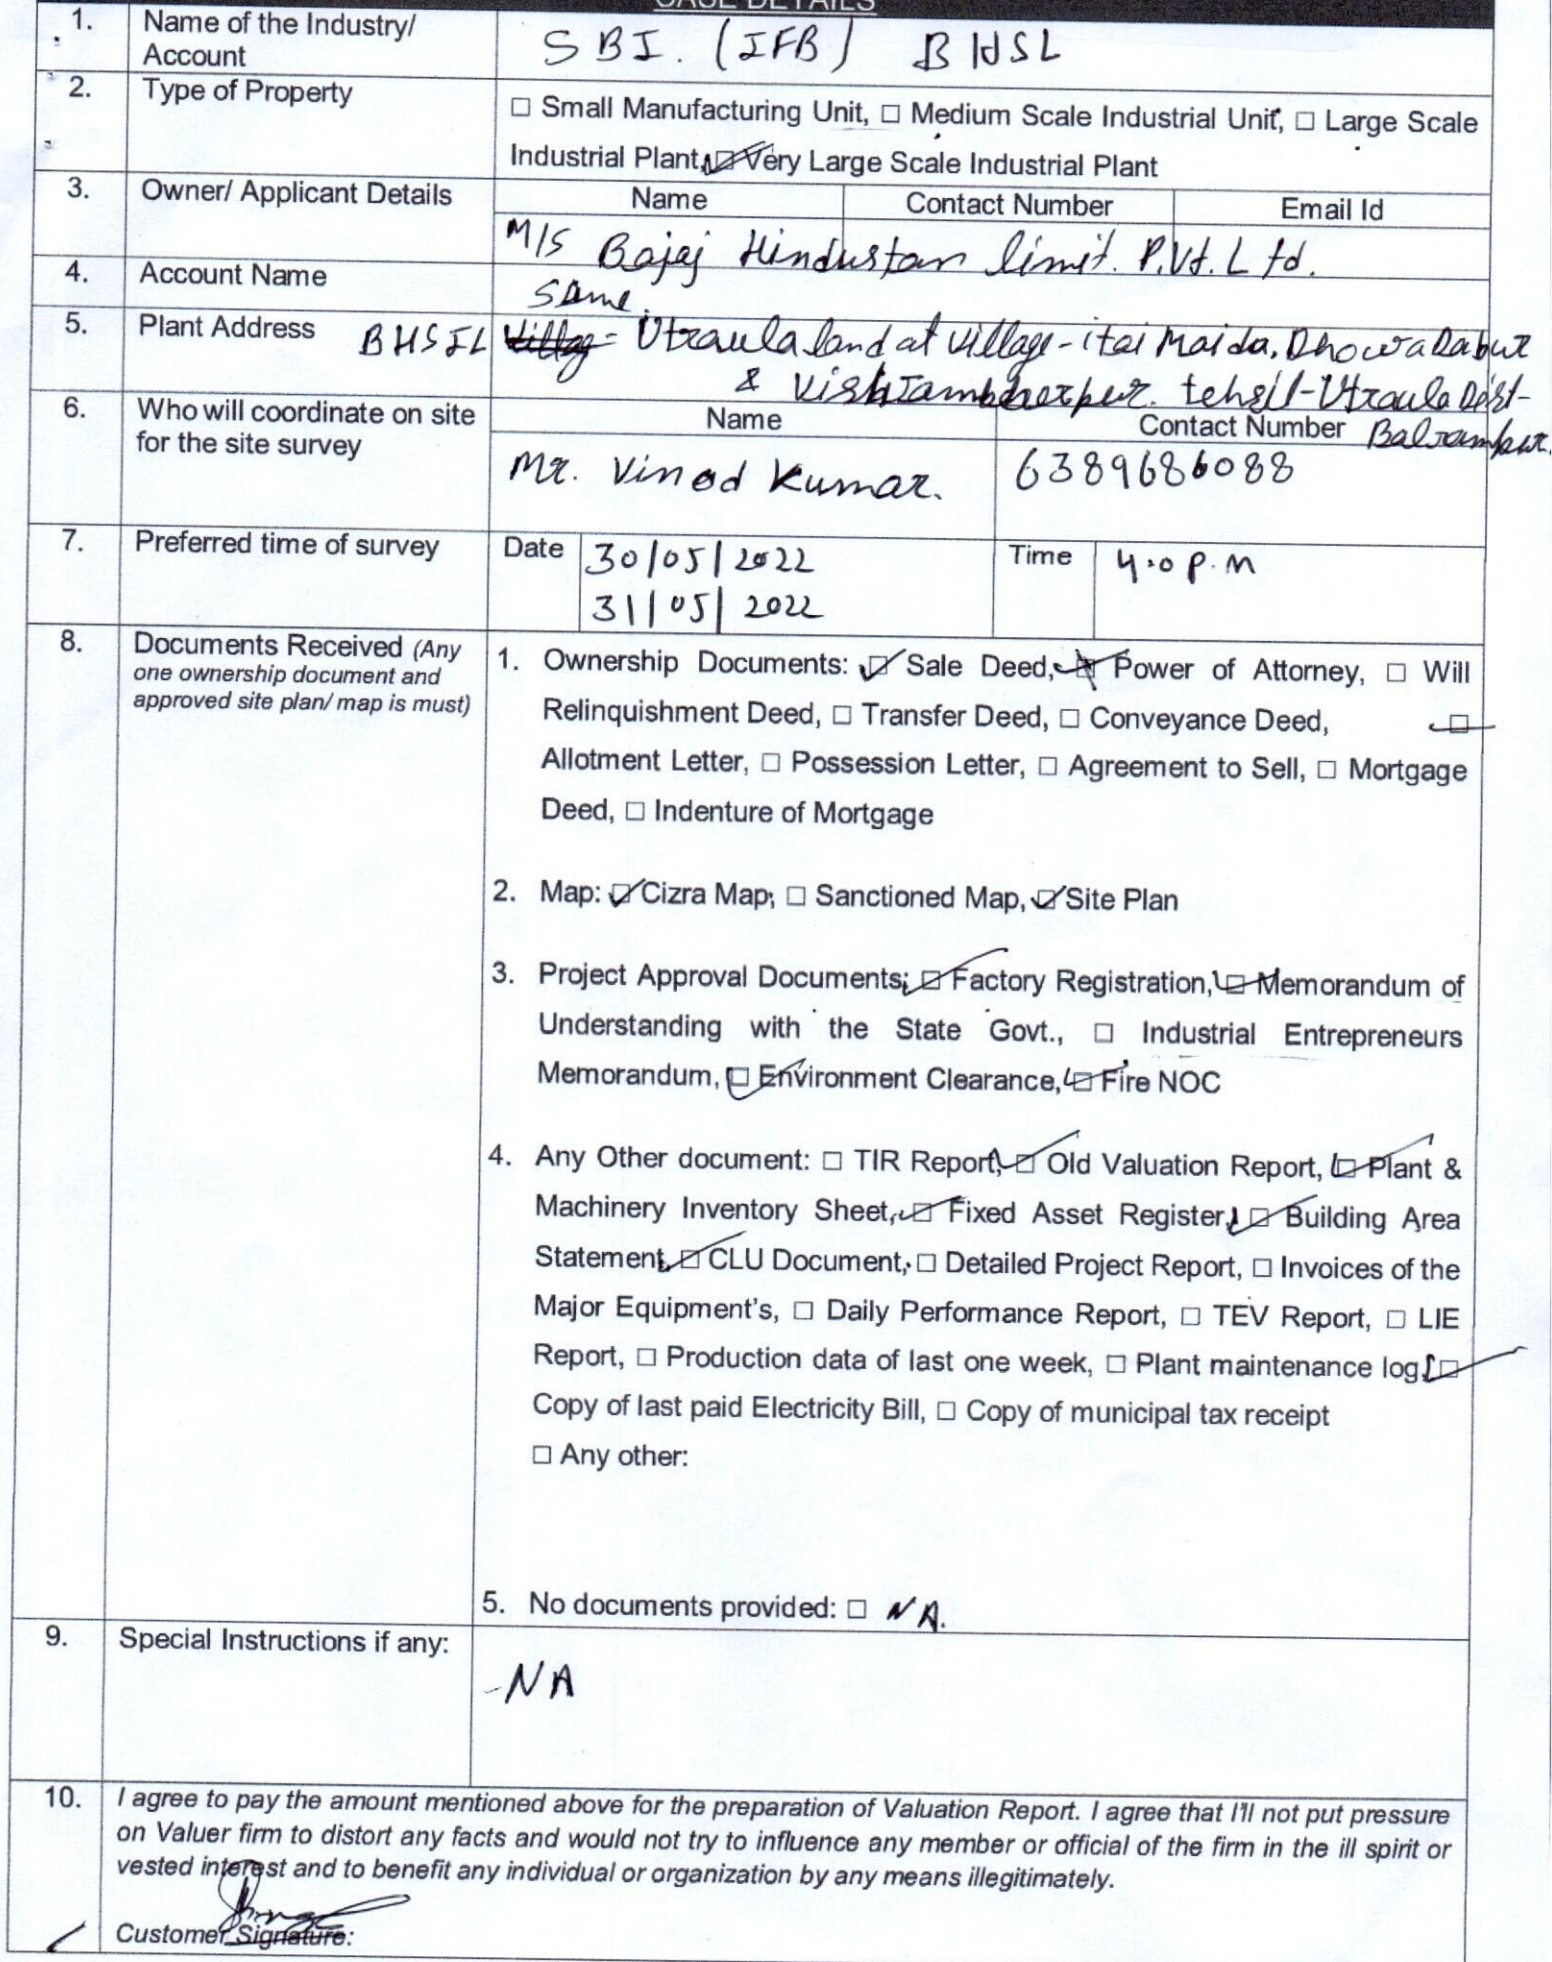 CASE DETAILS
1. Name of the Industry/ Account
SBI. (IFB) BHSL
2. Type of Property
☐ Small Manufacturing Unit, ☐ Medium Scale Industrial Unit, ☐ Large Scale
Industrial Plant, ☑ Very Large Scale Industrial Plant
3. Owner/ Applicant Details
Name Contact Number Email Id
M/S Bajaj Hindustan limit. P.Vt. Ltd.
4. Account Name
Same.
5. Plant Address BHSIL = Utraula land at village - itai Maida,
& tehsil - Utraula Dist-
Balrampur.
6. Who will coordinate on site
for the site survey
Name Contact Number
Mr. Vinod Kumar. 6389686088
7. Preferred time of survey
Date 30/05/2022 Time 4.0 P.M
31/05/2022
8. Documents Received (Any
one ownership document and
approved site plan/ map is must)
1. Ownership Documents: ☑ Sale Deed, ☑ Power of Attorney, ☐ Will
Relinquishment Deed, ☐ Transfer Deed, ☐ Conveyance Deed, ☑
Allotment Letter, ☐ Possession Letter, ☐ Agreement to Sell, ☐ Mortgage
Deed, ☐ Indenture of Mortgage
2. Map: ☑ Cizra Map, ☐ Sanctioned Map, ☑ Site Plan
3. Project Approval Documents: ☑ Factory Registration, ☑ Memorandum of
Understanding with the State Govt., ☐ Industrial Entrepreneurs
Memorandum, ☑ Environment Clearance, ☑ Fire NOC
4. Any Other document: ☐ TIR Report, ☑ Old Valuation Report, ☑ Plant &
Machinery Inventory Sheet, ☑ Fixed Asset Register, ☑ Building Area
Statement, ☑ CLU Document, ☐ Detailed Project Report, ☐ Invoices of the
Major Equipment's, ☐ Daily Performance Report, ☐ TEV Report, ☐ LIE
Report, ☐ Production data of last one week, ☐ Plant maintenance log, ☑
Copy of last paid Electricity Bill, ☐ Copy of municipal tax receipt
☐ Any other:
5. No documents provided: ☐ NA.
9. Special Instructions if any:
-NA
10. I agree to pay the amount mentioned above for the preparation of Valuation Report. I agree that I'll not put pressure
on Valuer firm to distort any facts and would not try to influence any member or official of the firm in the ill spirit or
vested interest and to benefit any individual or organization by any means illegitimately.
Customer Signature: